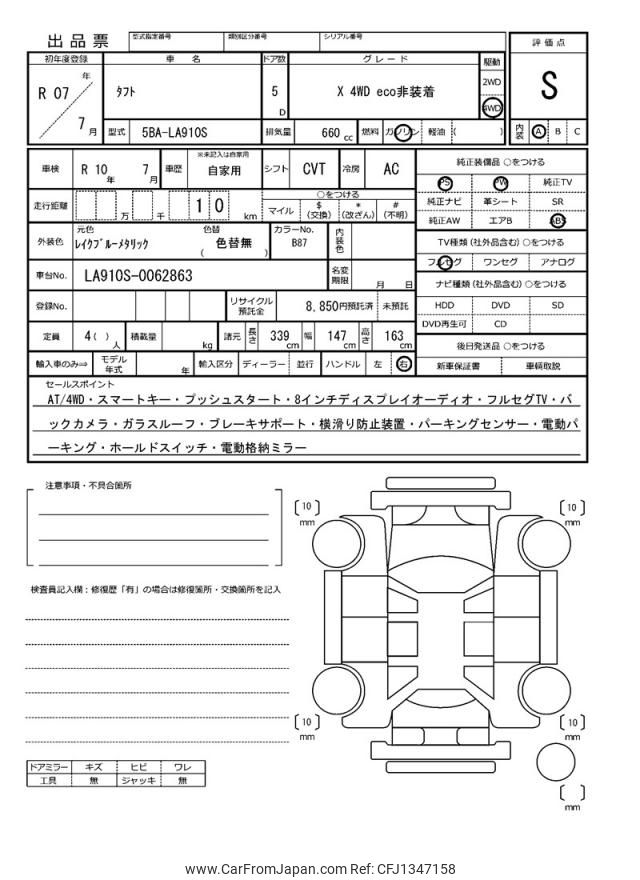 出品票
型式指定番号 類別区分番号 シリアル番号
初年度登録 車名 ドア数 グレード 駆動 評価点
R 07 年 7 月
タフト 5 D X 4WD eco非装着 2WD 4WD S
型式 5BA-LA910S 排気量 660 cc 燃料 ガソリン 軽油 ( ) 内装 A B C
車検 R 10 年 7 月 車歴 ※未記入は自家用 自家用 シフト CVT 冷房 AC
純正装備品 ○をつける
PS PW 純正TV
純正ナビ 革シート SR
純正AW エアB ABS
走行距離 万 千 1 0 km
○をつける
マイル $(交換) *(改ざん) #(不明)
外装色 元色 レイクブルーメタリック 色替 ( 色替無 ) カラーNo. B87 内装色
TV種類(社外品含む)○をつける
フルセグ ワンセグ アナログ
車台No. LA910S-0062863 名変期限 月 日
ナビ種類(社外品含む)○をつける
HDD DVD SD
DVD再生可 CD
登録No. リサイクル預託金 8,850円預託済 未預託
定員 4( ) 人 積載量 kg 諸元 長さ 339 cm 幅 147 cm 高さ 163 cm
後日発送品 ○をつける
新車保証書 車輌取説
輸入車のみ⇒ モデル年式 年 輸入区分 ディーラー 並行 ハンドル 左 右
セールスポイント
AT/4WD・スマートキー・プッシュスタート・8インチディスプレイオーディオ・フルセグTV・バ
ックカメラ・ガラスルーフ・ブレーキサポート・横滑り防止装置・パーキングセンサー・電動パ
ーキング・ホールドスイッチ・電動格納ミラー
注意事項・不具合箇所
[10] mm [10] mm
検査員記入欄:修復歴「有」の場合は修復箇所・交換箇所を記入
[10] mm [10] mm
ドアミラー キズ ヒビ ワレ
工具 無 ジャッキ 無
[ ] mm
www.CarFromJapan.com Ref: CFJ1347158